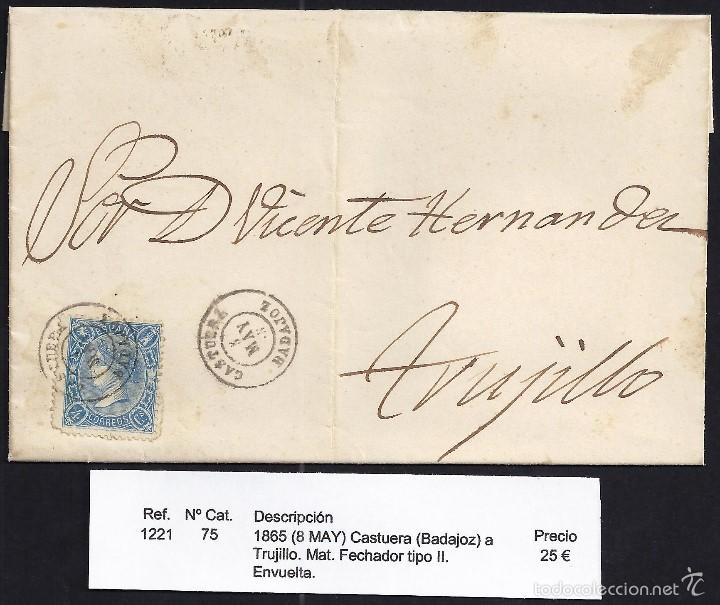 Sor D Vicente Hernandez
Trujillo
CASTUERA
8
MAY
BADAJOZ
ESPAÑA
CORREOS
Ref. Nº Cat. Descripción
1221 75 1865 (8 MAY) Castuera (Badajoz) a Precio
Trujillo. Mat. Fechador tipo II. 25 €
Envuelta.
todocoleccion.net